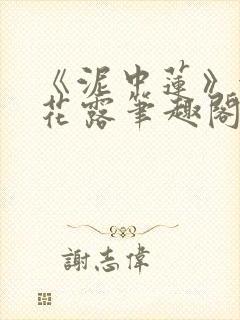 《泥中蓮》
花露筆趣閣
謝志偉